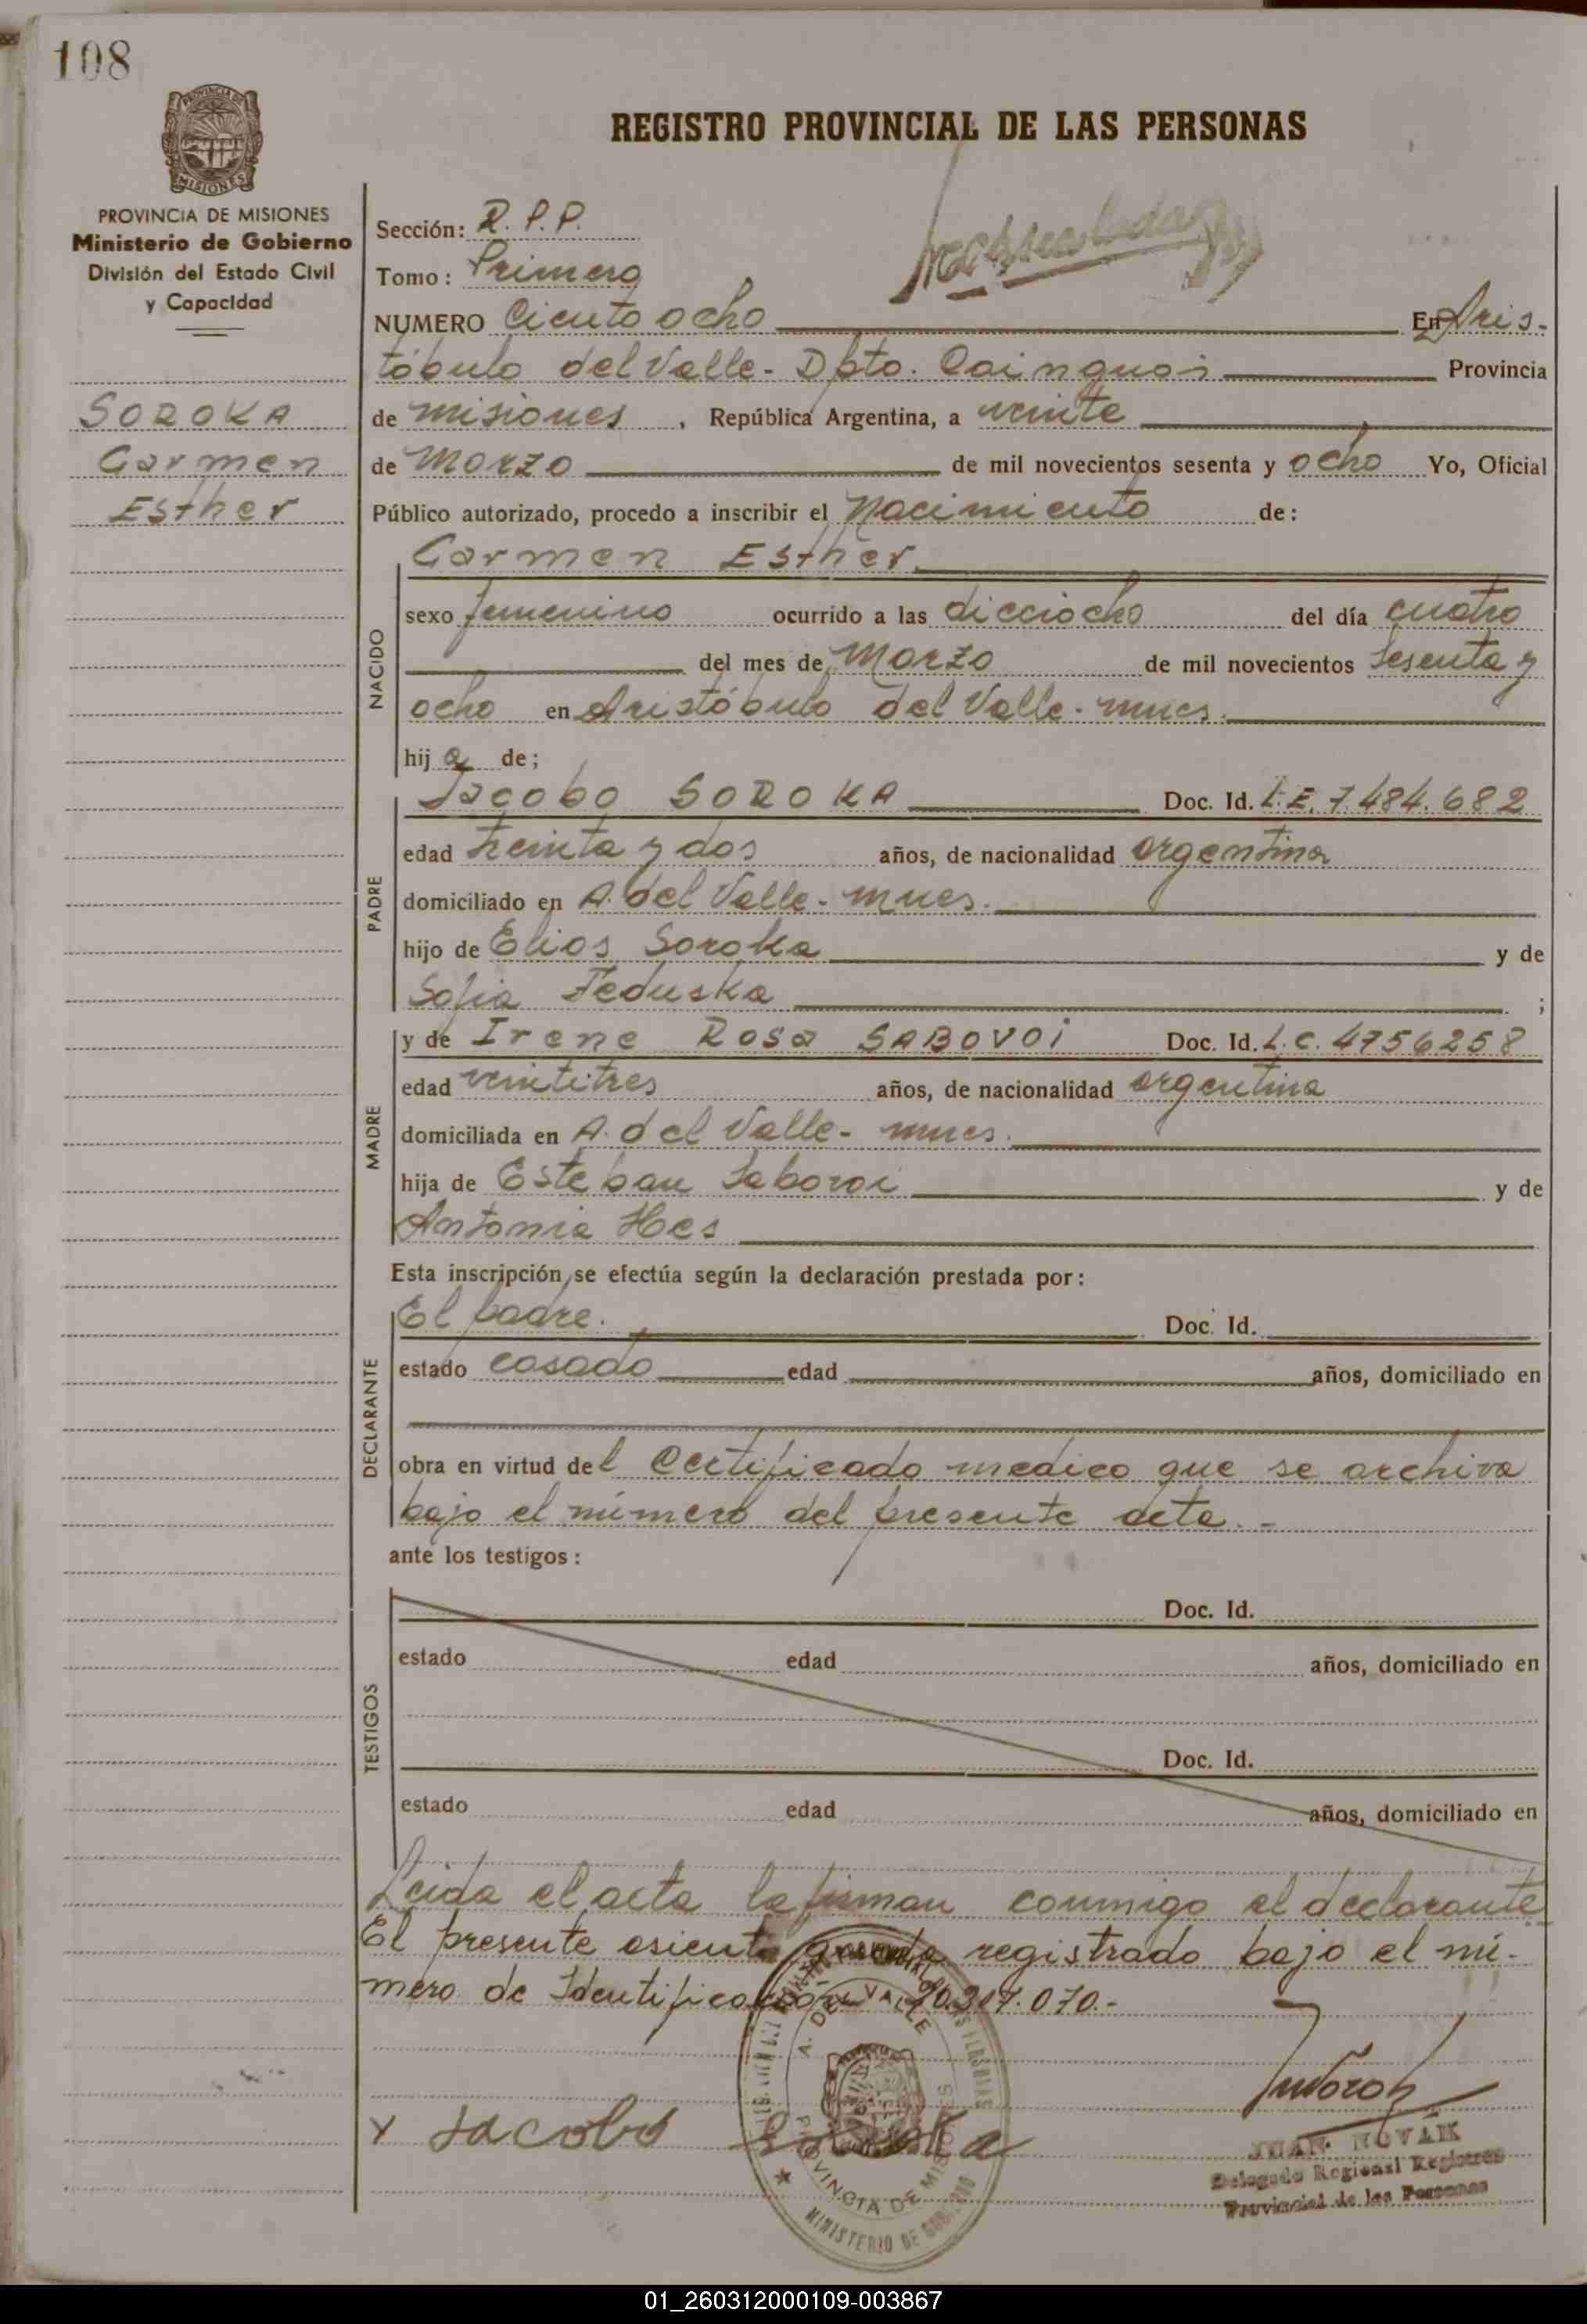 108
PROVINCIA DE MISIONES
REGISTRO PROVINCIAL DE LAS PERSONAS
PROVINCIA DE MISIONES
Ministerio de Gobierno
División del Estado Civil
y Capacidad
SOROKA
Carmen
Esther
Sección: R.P.P.
Tomo: Primero
NUMERO Ciento ocho En Aris-
tóbulo del Valle - Dpto. Cainguas Provincia
de Misiones, República Argentina, a veinte
de Marzo de mil novecientos sesenta y ocho Yo, Oficial
Público autorizado, procedo a inscribir el Nacimiento de:
NACIDO
Carmen Esther.
sexo femenino ocurrido a las dieciocho del día cuatro
del mes de Marzo de mil novecientos sesenta y
ocho en Aristóbulo del Valle - mnes.
hij a de;
PADRE
Jacobo SOROKA Doc. Id. L.E. 7.484.682
edad treinta y dos años, de nacionalidad argentina
domiciliado en A. del Valle - mnes.
hijo de Elias Soroka y de
Sofia Feduska ;
MADRE
y de Irene Rosa SABOVOI Doc. Id. L.C. 4756258
edad veintitres años, de nacionalidad argentina
domiciliada en A. del Valle - mnes.
hija de Esteban Sabovoi y de
Antonia Hes
Esta inscripción se efectúa según la declaración prestada por:
DECLARANTE
El padre. Doc. Id.
estado casado edad años, domiciliado en
obra en virtud del Certificado medico que se archiva
bajo el número del presente acta.-
ante los testigos:
TESTIGOS
Doc. Id.
estado edad años, domiciliado en
Doc. Id.
estado edad años, domiciliado en
Leida el acta la firman conmigo el declarante
El presente asiento queda registrado bajo el nú-
mero de Identificación 20.307.070.-
A. DEL VALLE
PROVINCIA DE MISIONES
MINISTERIO DE GOB.
x Jacobo Soroka
JUAN NOVÁK
Delegado Regional Registro
Provincial de las Personas
01_260312000109-003867